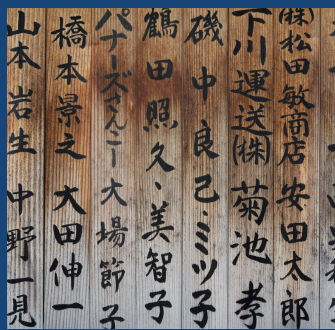 ㈱松田敏商店 安田太郎
下川運送㈱ 菊池 孝
磯中良己・ミツ子
鶴田照久・美智子
パナーズさんこー 大場節子
橋本景之 大田伸一
山本岩生 中野一見